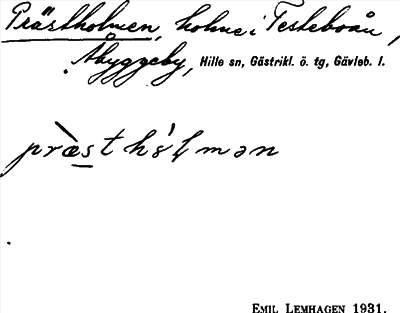 Prästholmen, holme i Testeboån,
Åbyggeby, Hille sn, Gästrikl. ö. tg, Gävleb. l.
præ̀sthɷ́lmən
EMIL LEMHAGEN 1931.